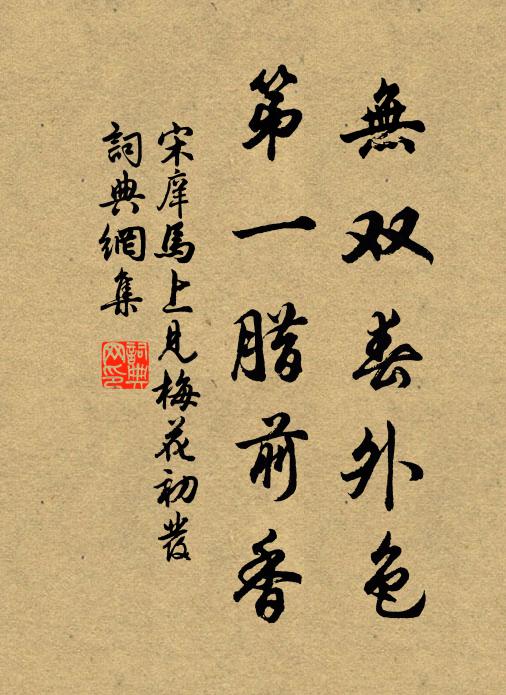 無双春外色
第一腊前香
宋庠馬上見梅花初發
詞典網集
詞典網印